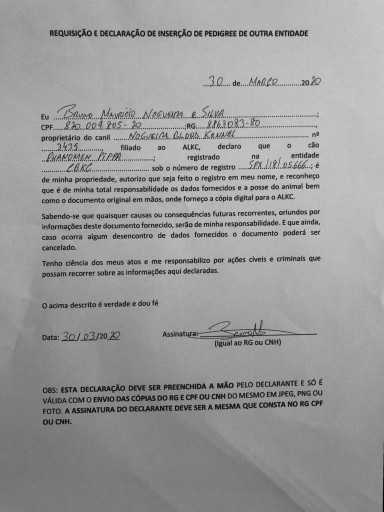 REQUISIÇÃO E DECLARAÇÃO DE INSERÇÃO DE PEDIGREE DE OUTRA ENTIDADE
30 de MARÇO 2020
Eu BRUNO MAURICIO NOGUEIRA E SILVA;
CPF 820.009.805-20;RG 8863083-80,
proprietário do canil NOGUEIRA BLOOD KENNEL nº
3435, filiado ao ALKC, declaro que o cão
PHANOMEN PIPPA; registrado na entidade
CBKC sob o número de registro SPX/18/05666, é
de minha propriedade, autorizo que seja feito o registro em meu nome, e reconheço
que é de minha total responsabilidade os dados fornecidos e a posse do animal bem
como o documento original em mãos, onde forneço a cópia digital para o ALKC.
Sabendo-se que quaisquer causas ou consequências futuras recorrentes, oriundos por
informações deste documento fornecido, serão de minha responsabilidade. E que ainda,
caso ocorra algum desencontro de dados fornecidos o documento poderá ser
cancelado.
Tenho ciência dos meus atos e me responsabilizo por ações cíveis e criminais que
possam recorrer sobre as informações aqui declaradas.
O acima descrito é verdade e dou fé
Data: 30/03/2020 Assinatura:
(Igual ao RG ou CNH)
OBS: ESTA DECLARAÇÃO DEVE SER PREENCHIDA A MÃO PELO DECLARANTE E SÓ É
VÁLIDA COM O ENVIO DAS CÓPIAS DO RG E CPF OU CNH DO MESMO EM JPEG, PNG OU
FOTO. A ASSINATURA DO DECLARANTE DEVE SER A MESMA QUE CONSTA NO RG CPF
OU CNH.